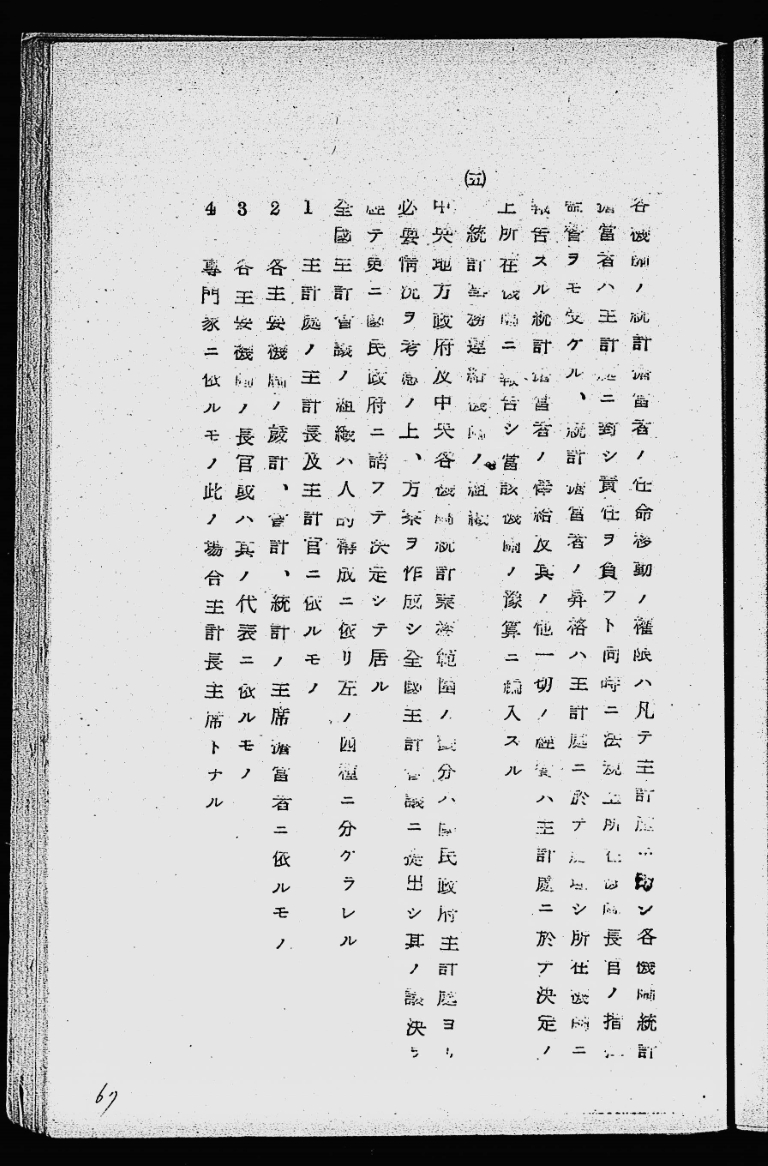 各機關ノ統計擔當者ノ任命移動ノ權限ハ凡テ主計處ニ ン各機關統計
擔當者ハ主計處ニ對シ責任ヲ負フト同時ニ法規上所在機關長官ノ指
監督ヲモ受ケル、統計擔當者ノ昇格ハ主計處ニ於テ シ所在機關ニ
報告スル統計擔當者ノ俸給及其ノ他一切ノ經費ハ主計處ニ於テ決定ノ
上所在機關ニ報告シ當該機關ノ豫算ニ編入スル
㈤ 統計事務連絡機關ノ組織
中央地方政府及中央各機關統計業務範圍ノ 分ハ國民政府主計處ヨリ
必要情況ヲ考慮ノ上、方案ヲ作成シ全國主計會議ニ提出シ其ノ議決ヲ
經テ更ニ國民政府ニ請フテ決定シテ居ル
全國主計會議ノ組織ハ人的構成ニ依リ左ノ四種ニ分ケラレル
1 主計處ノ主計長及主計官ニ依ルモノ
2 各主要機關ノ歲計、會計、統計ノ主席擔當者ニ依ルモノ
3 各主要機關ノ長官或ハ其ノ代表ニ依ルモノ
4 專門家ニ依ルモノ此ノ場合主計長主席トナル
67